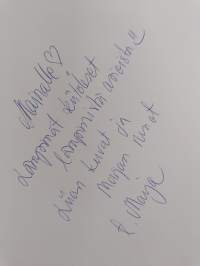 Mainalle ♡
Lämpimät kiitokset
lämpimistä arvioista!!
Liian kuvat ja
Marjan runot
t. Marja